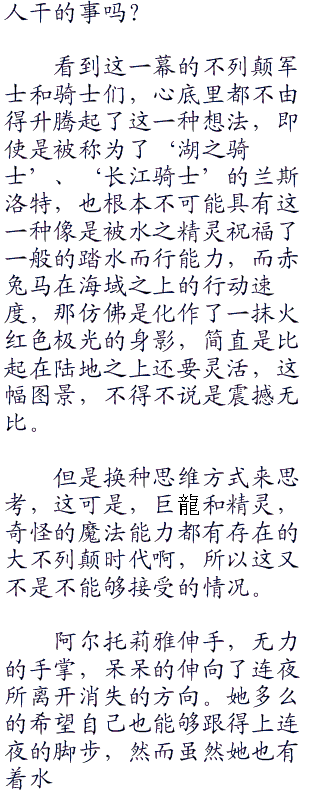 人干的事吗？
看到这一幕的不列颠军
士和骑士们，心底里都不由
得升腾起了这一种想法，即
使是被称为了‘湖之骑
士’、‘长江骑士’的兰斯
洛特，也根本不可能具有这
一种像是被水之精灵祝福了
一般的踏水而行能力，而赤
兔马在海域之上的行动速
度，那仿佛是化作了一抹火
红色极光的身影，简直是比
起在陆地之上还要灵活，这
幅图景，不得不说是震撼无
比。
但是换种思维方式来思
考，这可是，巨龍和精灵，
奇怪的魔法能力都有存在的
大不列颠时代啊，所以这又
不是不能够接受的情况。
阿尔托莉雅伸手，无力
的手掌，呆呆的伸向了连夜
所离开消失的方向。她多么
的希望自己也能够跟得上连
夜的脚步，然而虽然她也有
着水